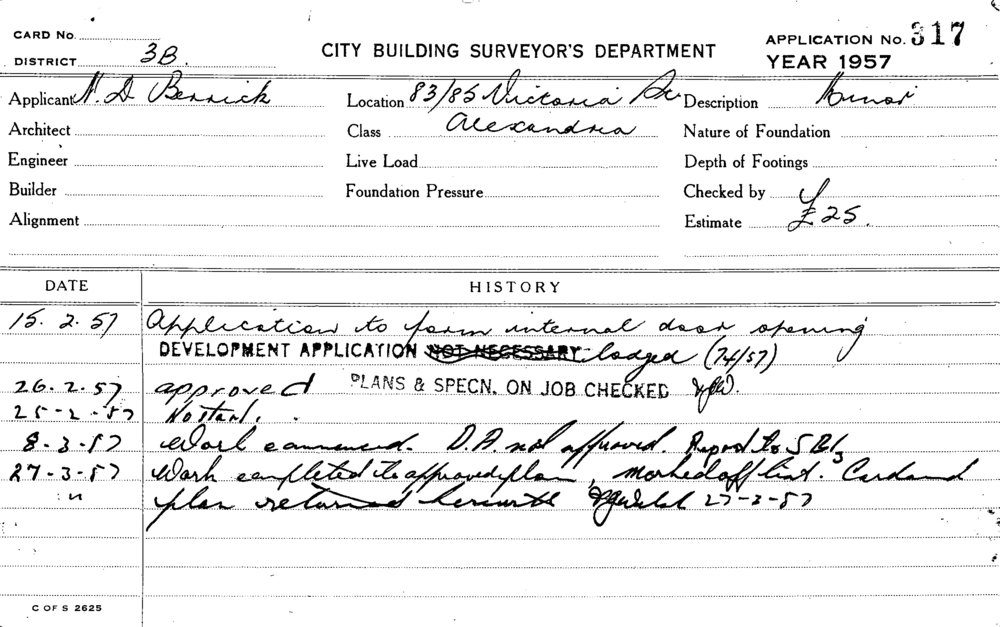 CARD No.
DISTRICT 3B.
CITY BUILDING SURVEYOR'S DEPARTMENT
APPLICATION No. 317
YEAR 1957
Applicant N. D. Berrick Location 83/85 Victoria Description Minor
Architect Class Alexandria Nature of Foundation
Engineer Live Load Depth of Footings
Builder Foundation Pressure Checked by
Alignment Estimate £25.
DATE HISTORY
15.2.57 Application to form internal door opening
DEVELOPMENT APPLICATION NOT NECESSARY. lodged (74/57)
26.2.57 approved PLANS & SPECN. ON JOB CHECKED
25-2-57 No start.
8-3-57 Work commenced. D.A. not approved. Report to
27-3-57 Work completed to approved plan, marked off list. Card and
" plan returned herewith 27-3-57
C OF S 2625